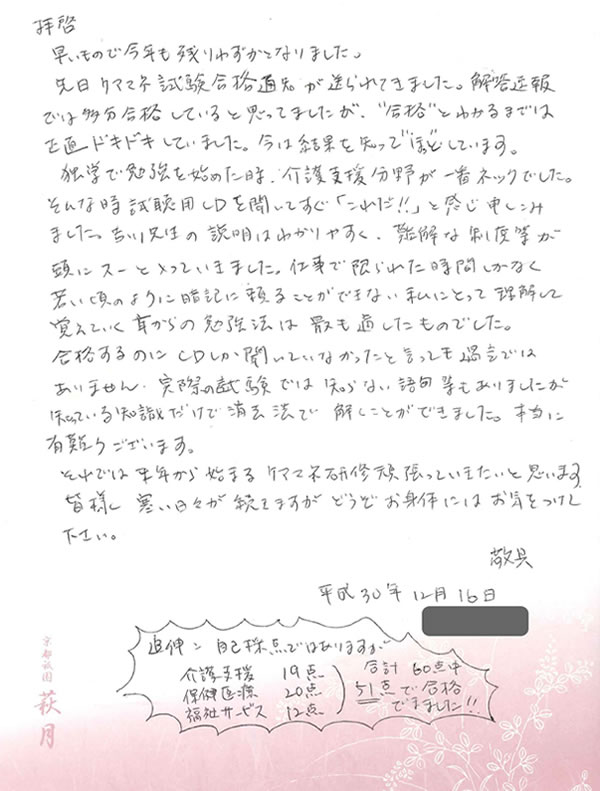 拝啓
早いもので今年も残りわずかとなりました。
先日ケアマネ試験合格通知が送られてきました。解答速報
では多分合格していると思ってましたが、"合格"とわかるまでは
正直ドキドキしていました。今は結果を知って"ほっ"としています。
独学で勉強を始めた時、介護支援分野が一番ネックでした。
そんな時試聴用CDを聞いてすぐ「これだ!!」と感じ申しこみ
ました。吉川先生の説明はわかりやすく、難解な制度等が
頭にスーと入っていきました。仕事で限られた時間しかなく
若い頃のように暗記に頼ることができない私にとって理解して
覚えていく耳からの勉強法は最も適したものでした。
合格するのにCDしか聞いていなかったと言っても過言では
ありません。実際の試験では知らない語句等もありましたが
知っている知識だけで消去法で解くことができました。本当に
有難うございます。
それでは来年から始まるケアマネ研修頑張っていきたいと思います
皆様も寒い日々が続きますがどうぞお身体にはお気をつけて
下さい。
敬具
平成30年12月16日
追伸:自己採点ではありますが
介護支援 19点
保健医療 20点
福祉サービス 12点
合計 60点中
51点で合格
できました!!
京都祇園
萩月